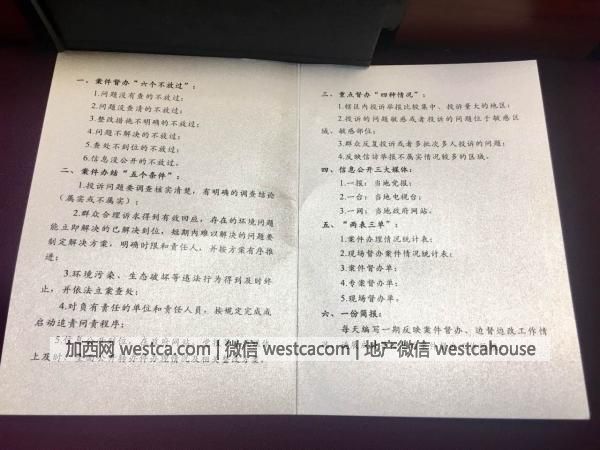 一、案件督办“六个不放过”：
1.问题没有查的不放过；
2.问题没查清的不放过；
3.整改措施不明确的不放过；
4.问题不解决的不放过；
5.查处不到位的不放过；
6.信息没公开的不放过。
二、案件办结“五个条件”：
1.投诉问题要调查核实清楚，有明确的调查结论
（属实或不属实）；
2.群众合理诉求得到有效回应，存在的环境问题
能立即解决的已解决到位，短期内难以解决的问题要
制定解决方案，明确时限和责任人，并按方案有序推
进；
3.环境污染、生态破坏等违法行为得到及时终
止，并依法立案查处；
4.对负有责任的单位和责任人员，按规定完成或
启动追责问责程序；
上及时
三、重点督办“四种情况”：
1.辖区内投诉举报比较集中、投诉量大的地区；
2.投诉的问题敏感或者投诉的问题位于敏感区
域、敏感部位；
3.群众反复投诉或者多批次多人投诉的问题；
4.反映信访举报不属实情况较多的区域。
四、信息公开三大媒体：
1.一报：当地党报；
2.一台：当地电视台；
3.一网：当地政府网站。
五、“两表三单”：
1.案件办理情况统计表；
2.现场督办案件情况统计表；
3.案件督办单；
4.专案督办单；
5.现场督办单。
六、一份简报：
每天编写一期反映案件督办、边督边改工作情
加西网 westca.com | 微信 westcacom | 地产微信 westcahouse